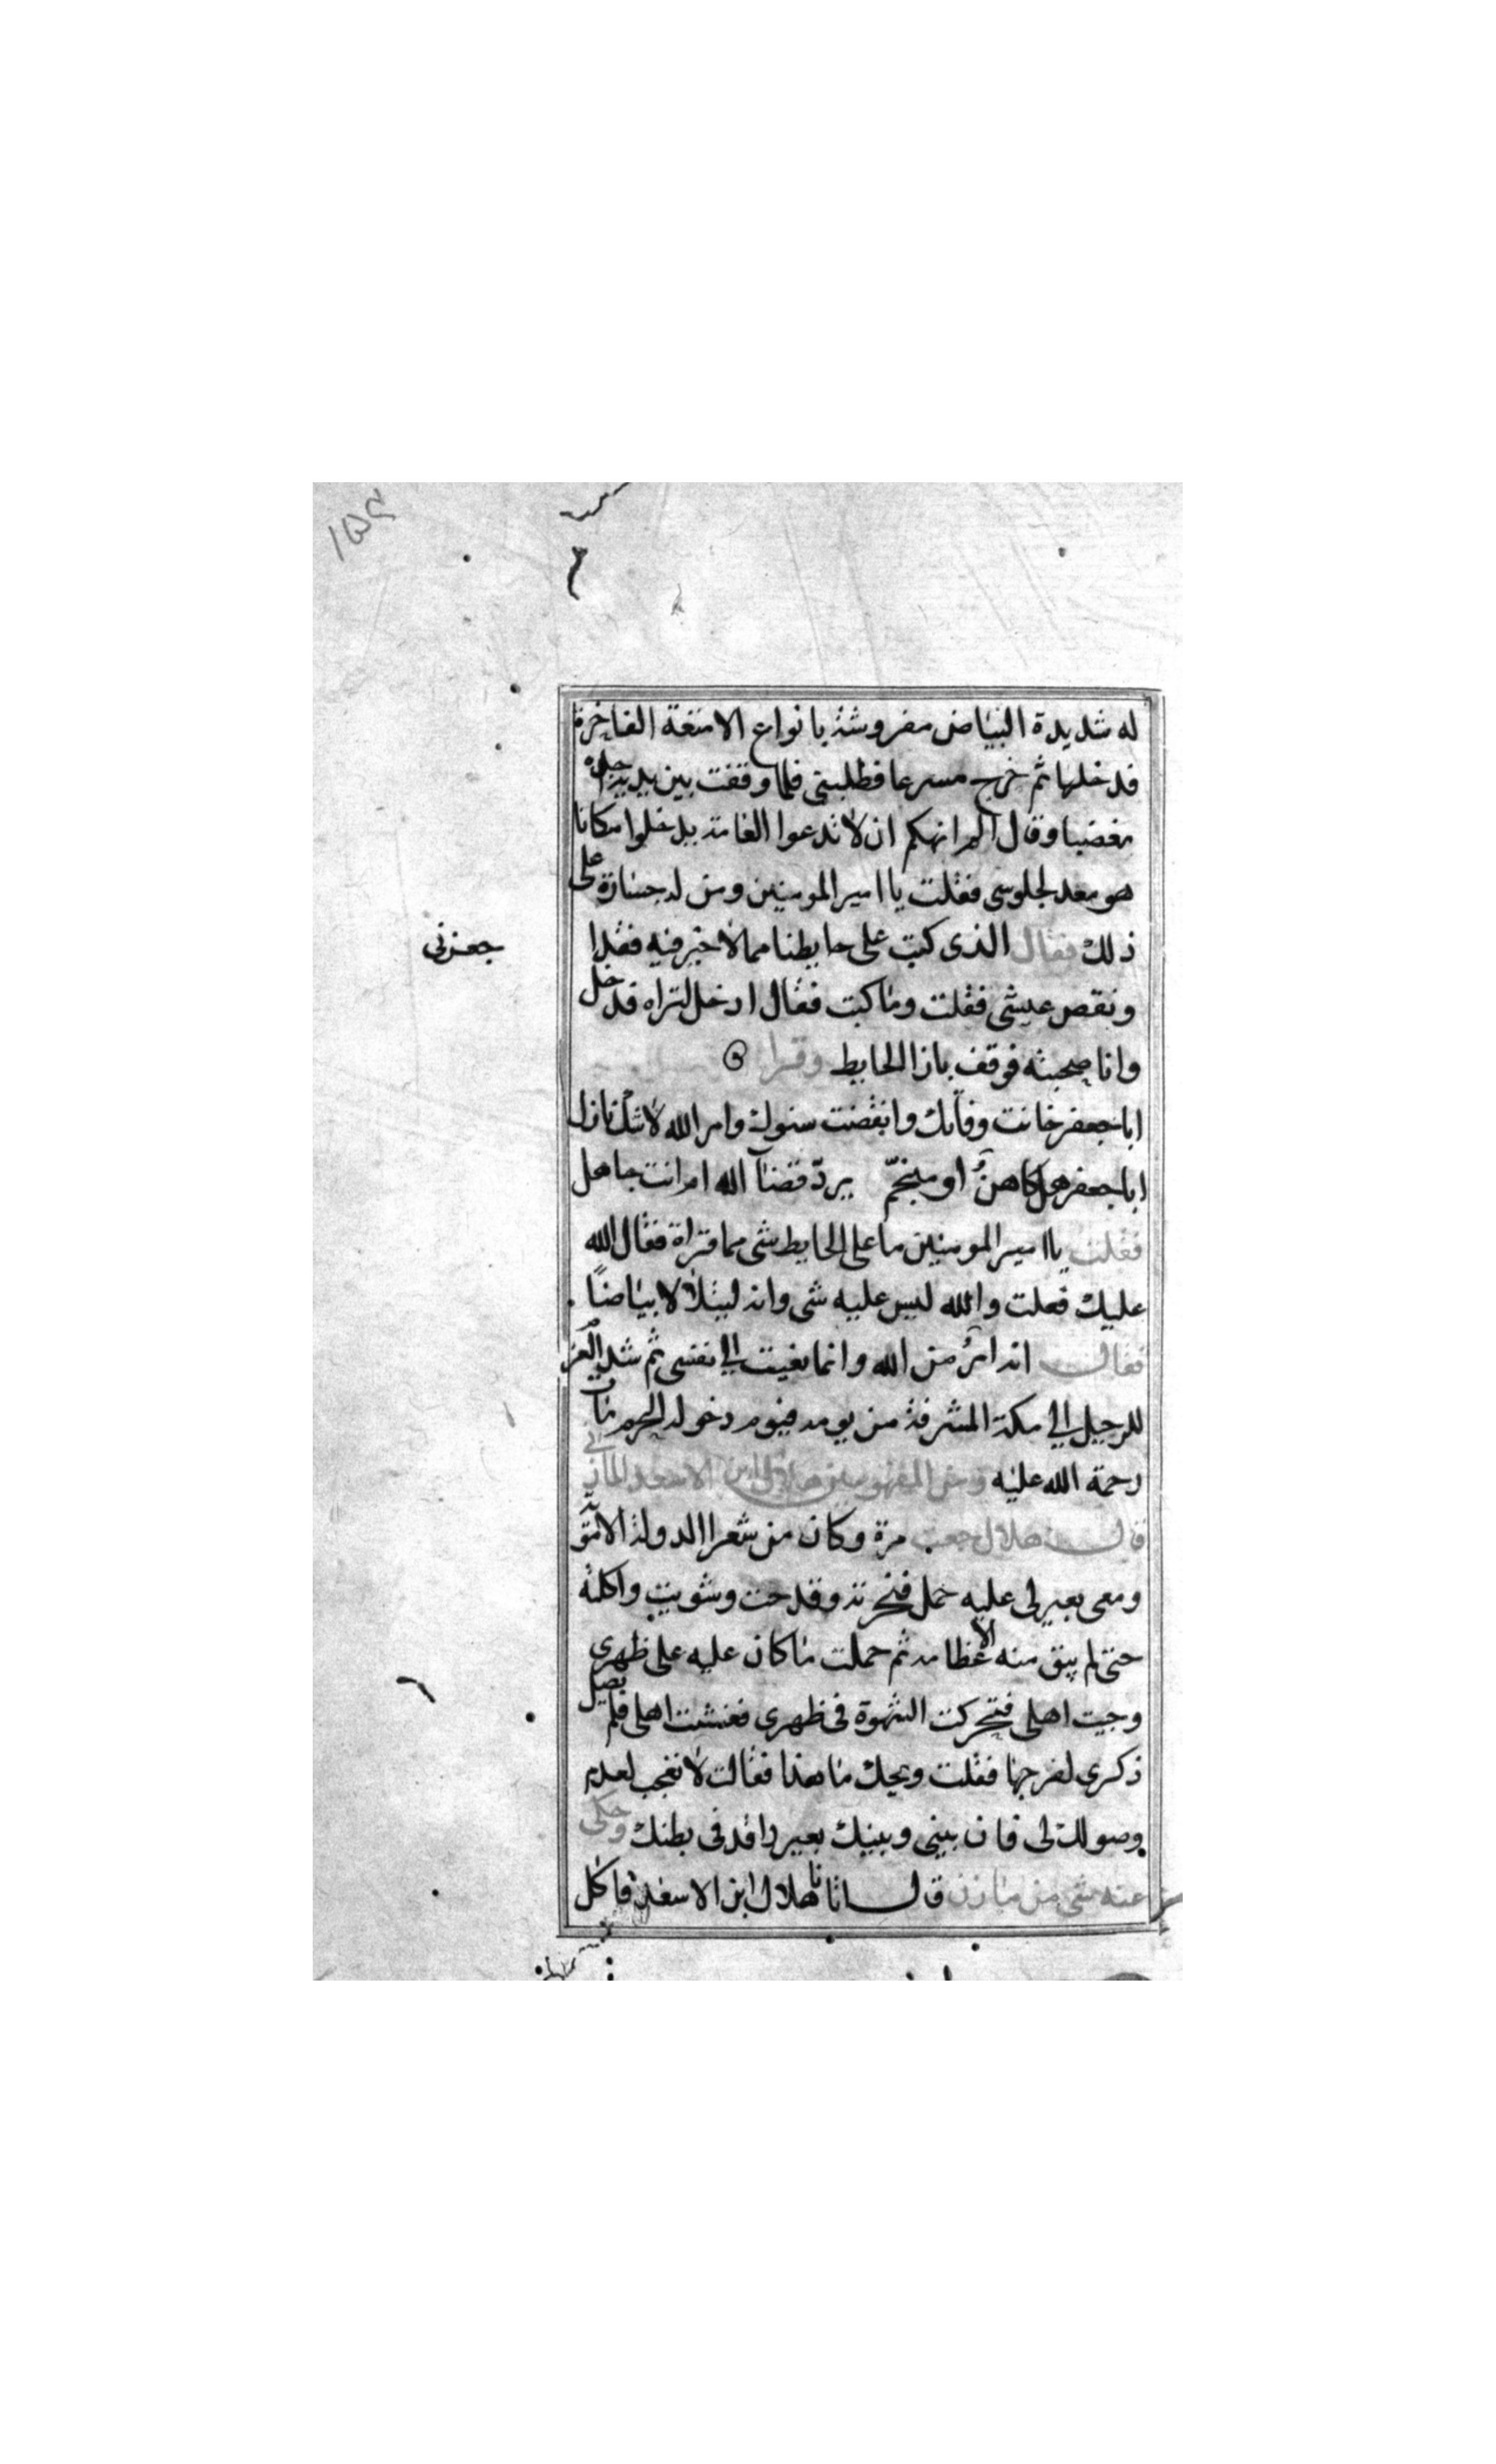 له شديدة البياض مفروشة بانواع الامتعة الفاخرة
فدخلها ثم خرج مسرعا فطلبني فلما وقفت بين يديه
مغضبا وقال الم انهكم ان لا تدعوا العامة يدخلوا مكانا
هو معد لجلوسي فقلت يا امير المومنين ومن له جسارة على
ذلك فقال الذي كتب على حايطنا مما لا خير فيه فقد ا
جعزني
ونقص عيشي فقلت وما كتب فقال ادخل لتراه فدخل
وانا صحبته فوقف بازا الحايط وقرا
ابا جعفر حانت وفاتك وانقضت سنوك وامر الله لا شك نازل
ابا جعفر هل كاهن او منجم يرد قضآ الله ام انت جاهل
فقلت يا امير المومنين ما على الحايط شي مما قتراة فقال الله
عليك فعلت والله ليس عليه شي وانه ليتلالا بياضا
فقالت انه امر من الله وانما نعيت الي نفسي ثم شد العزم
للرحيل الي مكة المشرفة من يومه فيوم دخوله الحرم مات
رحمة الله عليه ومن المنهومين هلال ابن الاسعد المازني
قال هلال جعت مرة وكان من شعرا الدولة الاموية
ومعي بعير لي عليه حمل فنحرته وقدحت وشويت واكلته
حتى لم يبق منه الا عظامه ثم حملت ما كان عليه على ظهري
وجيت اهلي فتحركت الشهوة في ظهري فغشيت اهلي فلم يصل
ذكري لفرجها فقلت ويحك ما هذا فقالت لا تعجب لعدم
وصولك لي فان بيني وبينك بعير راقد في بطنك وحكى
عنه شي من مازن قال اتانا هلال ابن الاسعد فاكل